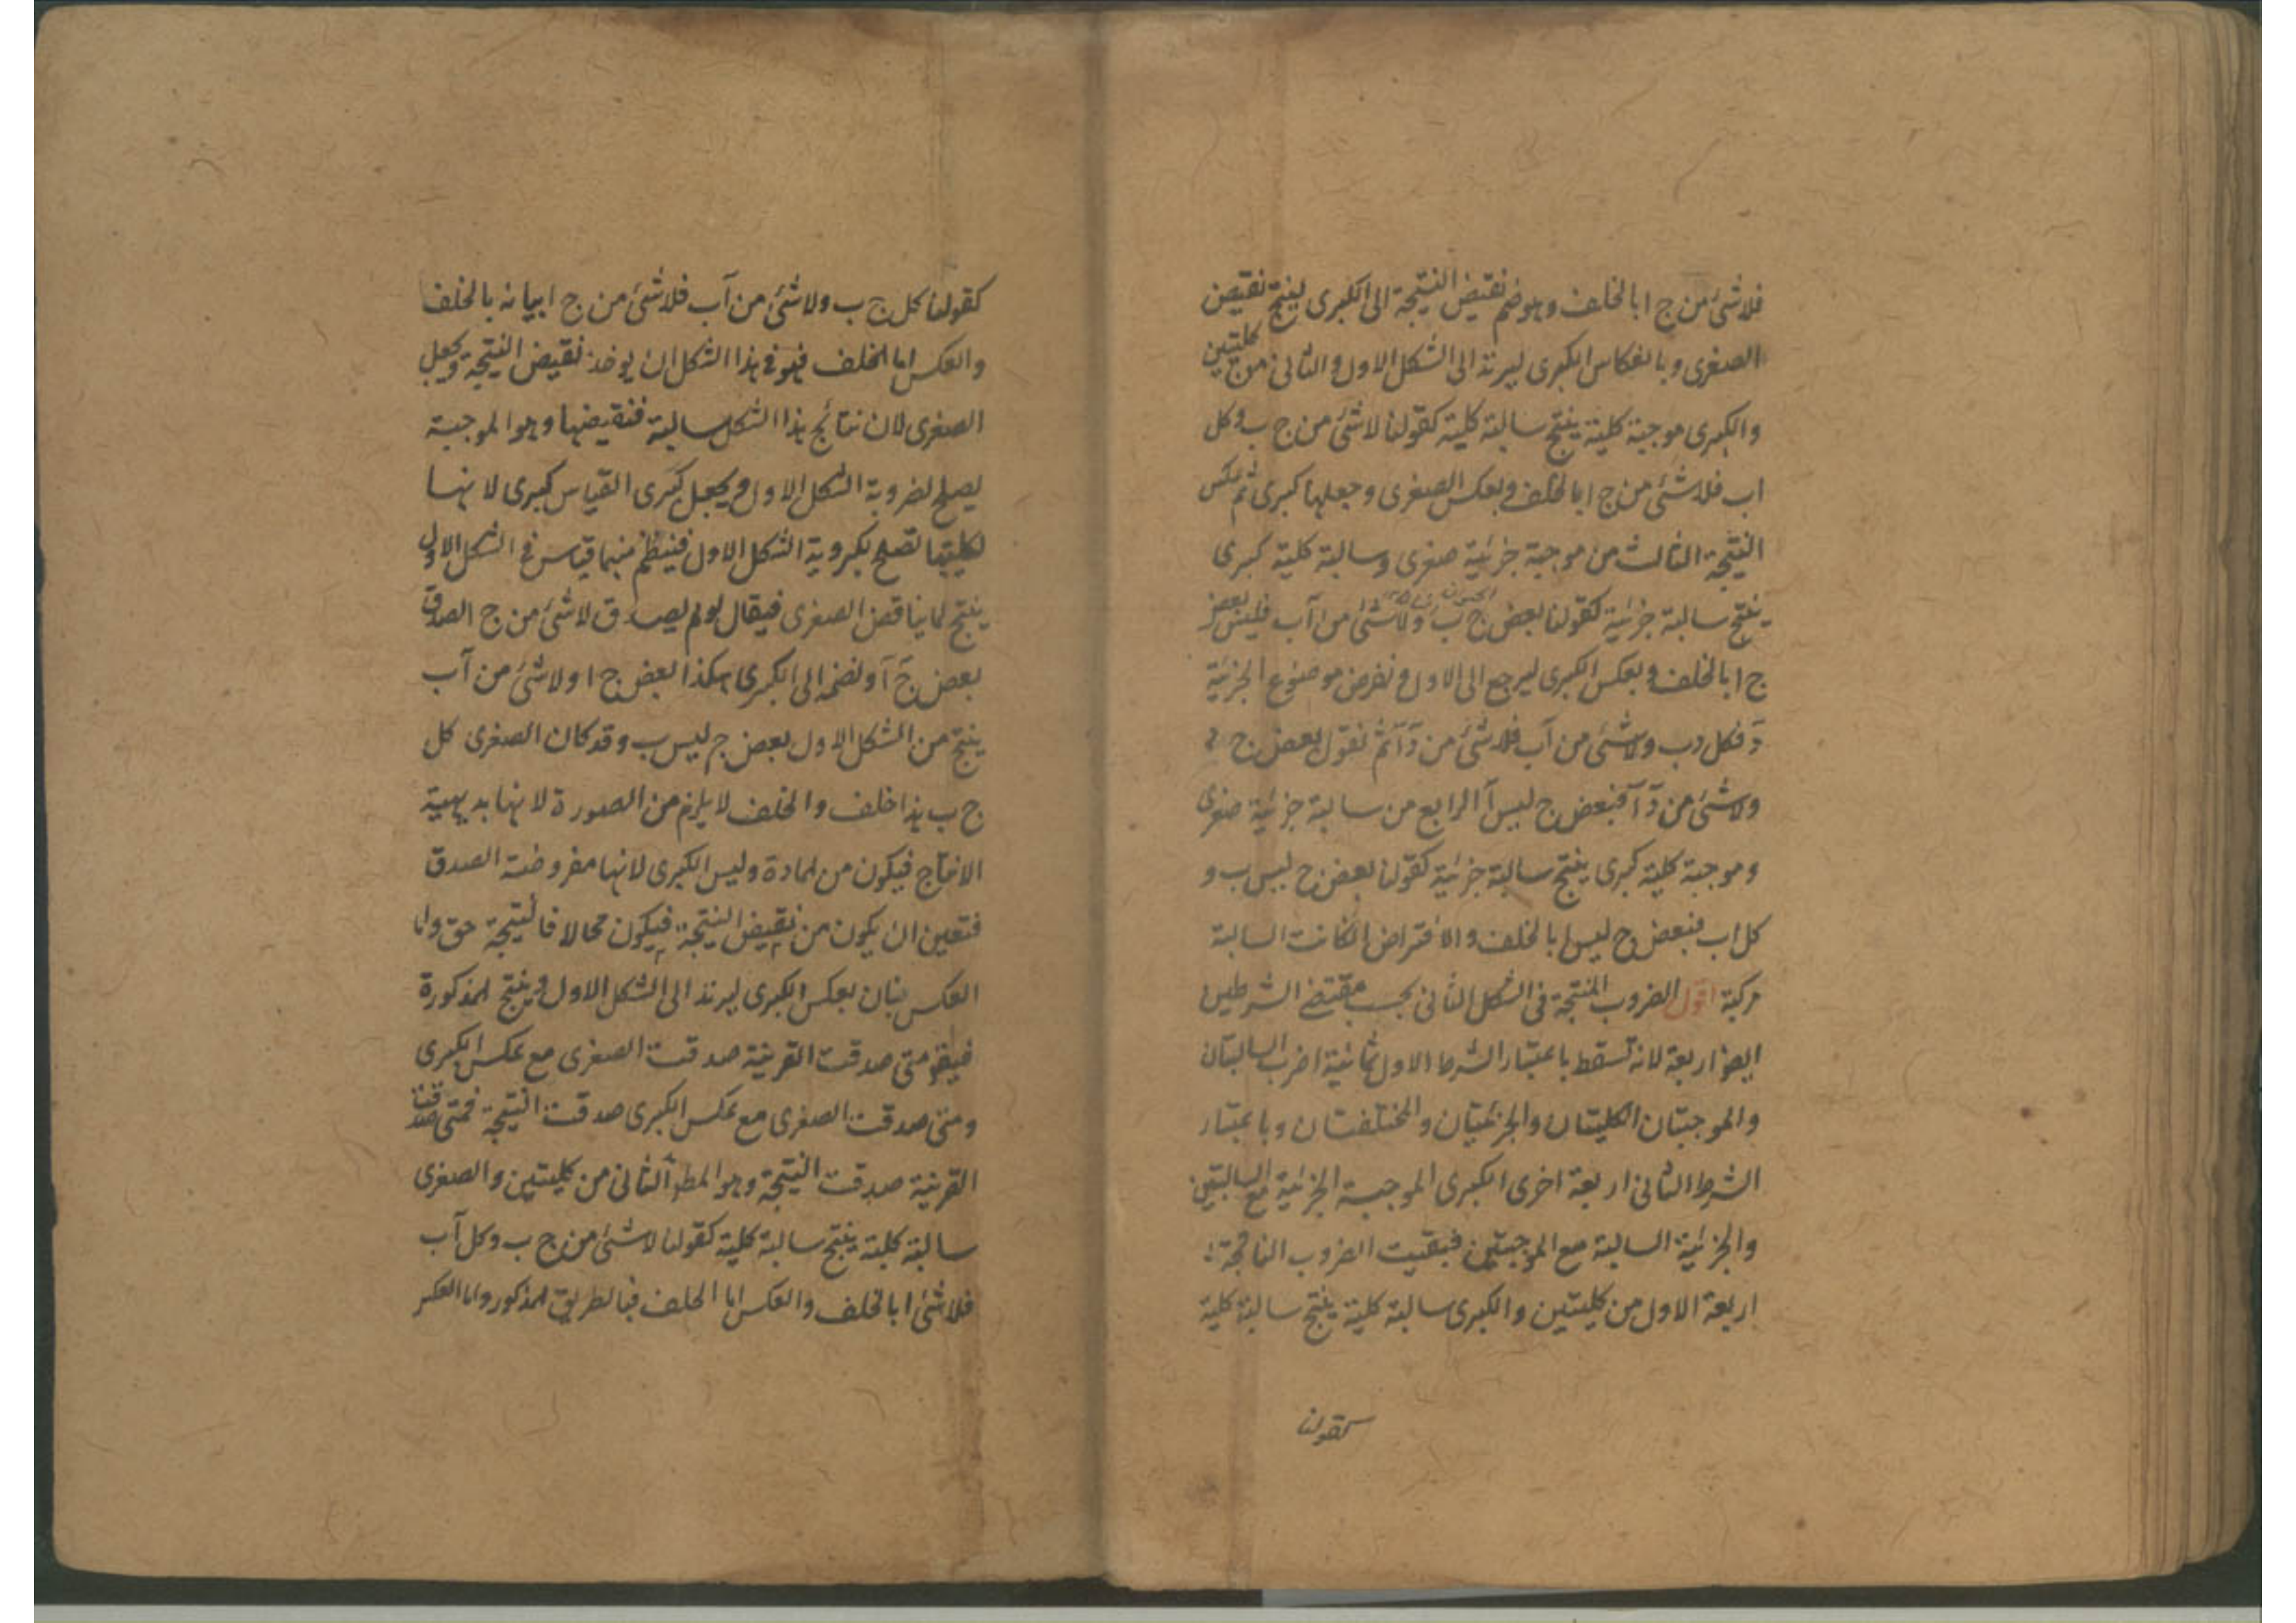 فلاشئ من ج ا بالخلف وهو ضم نقيض النتيجة الى الكبرى لينتج نقيض
الصغرى وبانعكاس الكبرى ليرتد الى الشكل الاول والثانى من كليتين
والكبرى موجبة كلية ينتج سالبة كلية كقولنا لاشئ من ج ب وكل
اب فلاشئ من ج ا بالخلف وبعكس الصغرى وجعلها كبرى ثم عكس
النتيجة الثالث من موجبة جزئية صغرى وسالبة كلية كبرى
ينتج سالبة جزئية كقولنا بعض ج ب ولاشئ من آب فليس بعض
ج ا بالخلف وبعكس الكبرى ليرجع الى الاول ونفرض موضوع الجزئية
د فكل دب ولاشئ من آب فلاشئ من دآ ثم نقول بعض ج د
ولاشئ من دآ فبعض ج ليس آ الرابع من سالبة جزئية صغرى
وموجبة كلية كبرى ينتج سالبة جزئية كقولنا بعض ج ليس ب و
كل اب فبعض ج ليس ا بالخلف والافتراض انكانت السالبة
مركبة اقول الضروب المنتجة فى الشكل الثانى بحسب مقتضى الشرطين
ايضا اربعة لانه تسقط باعتبار الشرط الاول ثمانية اضرب السالبتان
والموجبتان الكليتان والجزئيتان والمختلفتان وباعتبار
الشرط الثانى اربعة اخرى الكبرى الموجبة الجزئية مع السالبتين
والجزئية السالبة مع الموجبتين فبقيت الضروب الناتجة
اربعة الاول من كليتين والكبرى سالبة كلية ينتج سالبة كلية
كقولنا
كقولنا كل ج ب ولاشئ من آب فلاشئ من ج ا بيانه بالخلف
والعكس اما الخلف فهو فى هذا الشكل ان يوخذ نقيض النتيجة ويجعل
الصغرى لان نتائج هذا الشكل سالبة فنقيضها وهو الموجبة
يصلح لصغروية الشكل الاول ويجعل كبرى القياس كبرى لانها
لكليتها تصلح لكبروية الشكل الاول فينتظم منهما قياس فى الشكل الاول
ينتج لما يناقض الصغرى فيقال لو لم يصدق لاشئ من ج ا لصدق
بعض ج آ ونضمه الى الكبرى هكذا بعض ج ا ولاشئ من آب
ينتج من الشكل الاول بعض ج ليس ب وقد كان الصغرى كل
ج ب هذا خلف والخلف لا يلزم من الصورة لانها بديهية
الانتاج فيكون من المادة وليس الكبرى لانها مفروضة الصدق
فتعين ان يكون من نقيض النتيجة فيكون محالا فالنتيجة حق واما
العكس فبان بعكس الكبرى ليرتد الى الشكل الاول وينتج المذكورة
فيقو متى صدقت القرينة صدقت الصغرى مع عكس الكبرى
ومتى صدقت الصغرى مع عكس الكبرى صدقت النتيجة فمتى صدقت
القرينة صدقت النتيجة وهو المط الثانى من كليتين والصغرى
سالبة كلية ينتج سالبة كلية كقولنا لاشئ من ج ب وكل آب
فلاشئ ا بالخلف والعكس اما الخلف فبالطريق المذكور واما العكس